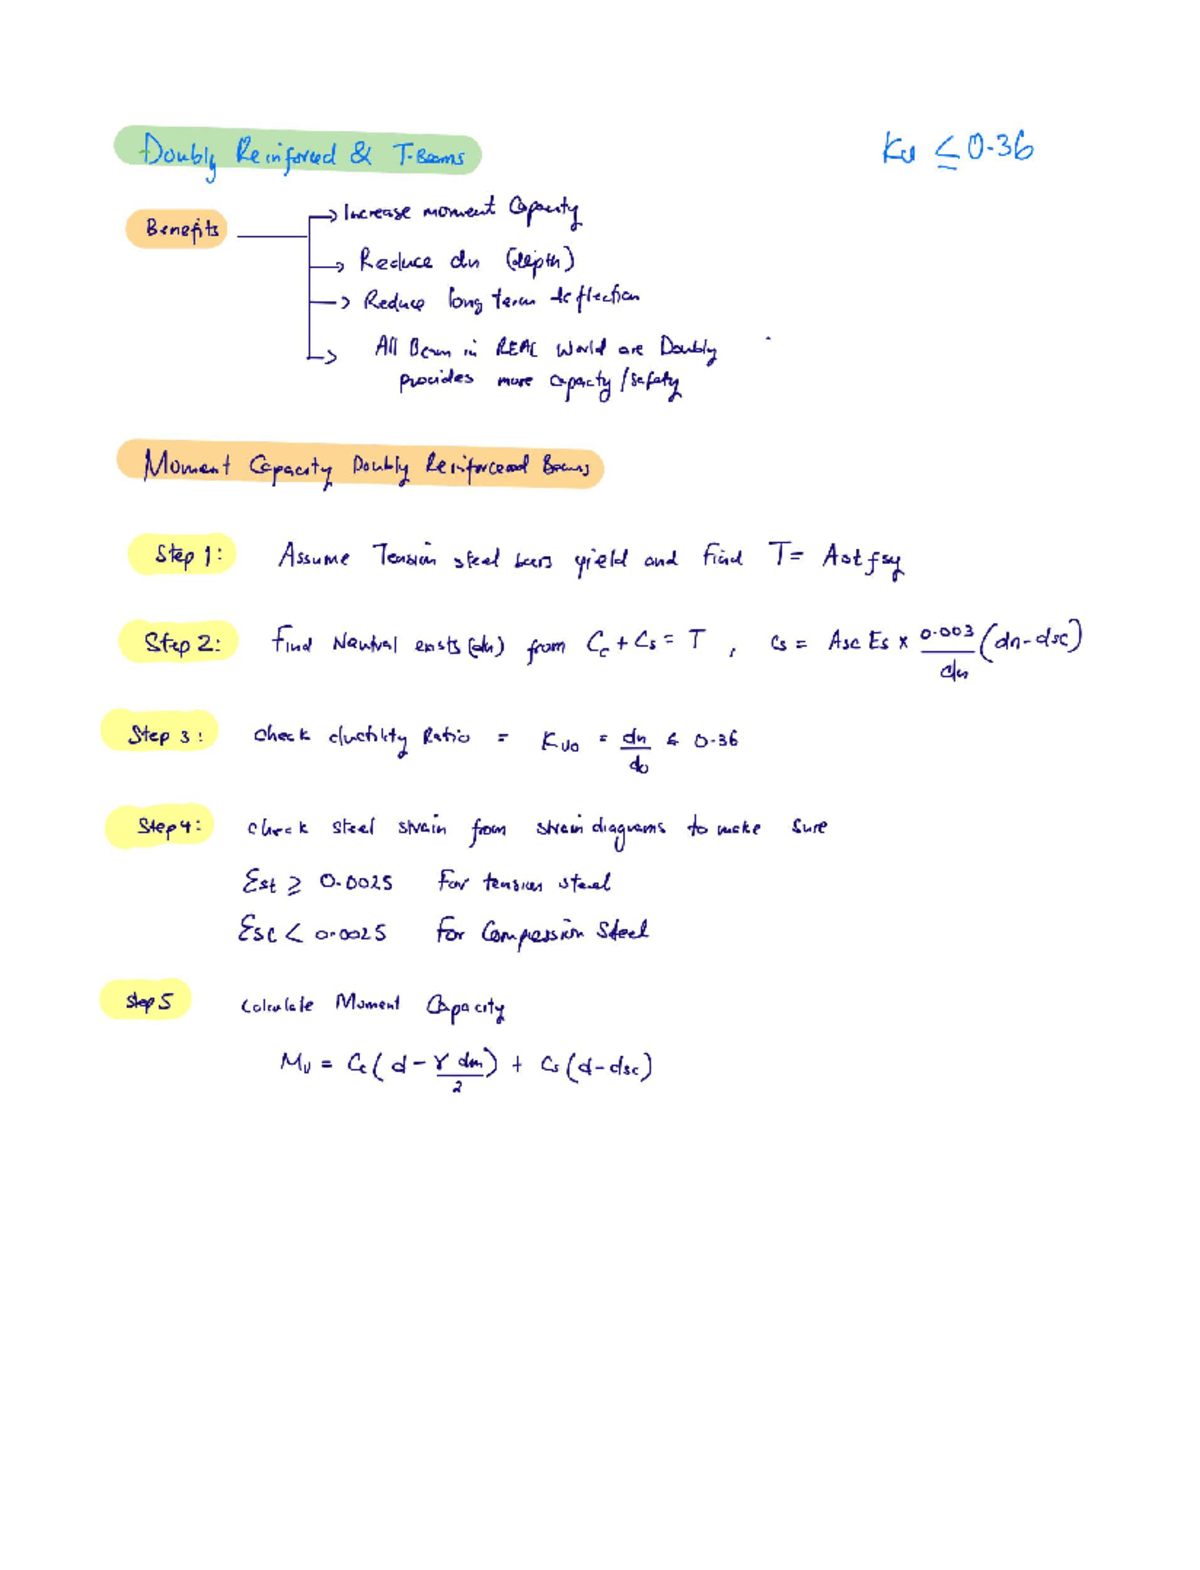 Doubly Reinforced & T-Beams
Ku ≤ 0.36
Benefits
→ Increase moment Capacity
→ Reduce dn (depth)
→ Reduce long term deflection
→ All Beam in REAL World are Doubly
provides more capacity / safety
Moment Capacity Doubly Reinforced Beams
Step 1: Assume Tension steel bars yield and find T = Ast fsy
Step 2: Find Neutral (dn) from Cc + Cs = T , Cs = Asc Es × 0.003/dn (dn - dsc)
Step 3: Check ductility Ratio = Kuo = dn/do ≤ 0.36
Step 4: Check steel strain from strain diagrams to make sure
Est ≥ 0.0025 For tension steel
Esc < 0.0025 For Compression Steel
Step 5 Calculate Moment Capacity
Mu = Cc (d - γ dn/2) + Cs (d - dsc)